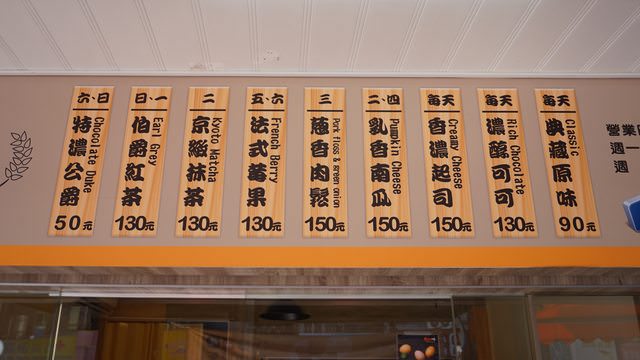 六、日
特濃公爵
Chocolate Duke
50元
日、一
伯爵紅茶
Earl Grey
130元
二
京緻抹茶
Kyoto Matcha
130元
五、六
法式莓果
French Berry
130元
三
蔥香肉鬆
Pork floss & green onion
150元
二、四
乳香南瓜
Pumpkin Cheese
150元
每天
香濃起司
Creamy Cheese
150元
每天
濃醇可可
Rich Chocolate
130元
每天
典藏原味
Classic
90元
營業
週一
週